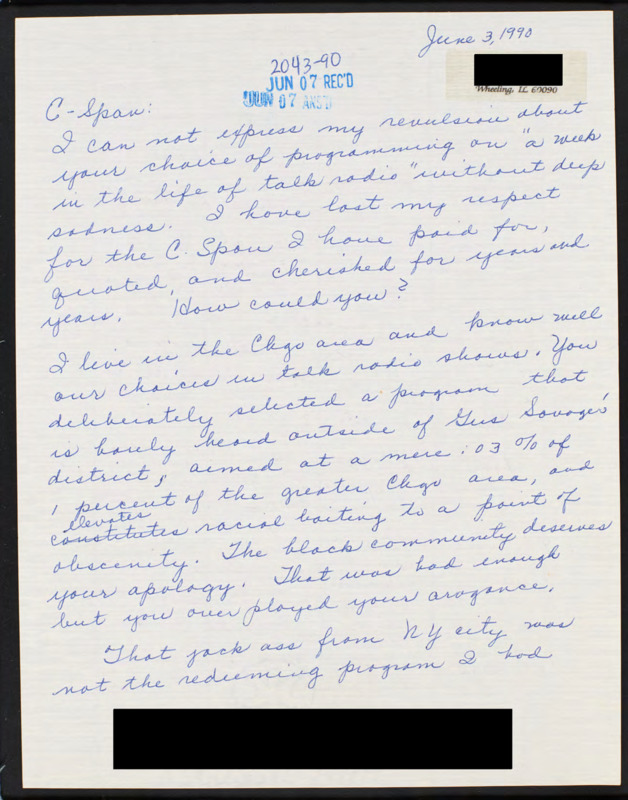 June 3, 1990
2043-90
JUN 07 REC'D
JUN 07 ANS'D
Wheeling, IL 60090
C-Span:
I can not express my revulsion about
your choice of programming on "a week
in the life of talk radio" without deep
sadness. I have lost my respect
for the C. Span I have paid for,
quoted, and cherished for years and
years. How could you?
I live in the Chgo area and know well
our choices in talk radio shows. You
deliberately selected a program that
is barely heard outside of Gus Savage's
district, aimed at a mere .03 % of
1 percent of the greater Chgo area, and
elevates
constitutes racial baiting to a point of
obscenity. The black community deserves
your apology. That was bad enough
but you over played your arogance.
That jack ass from NY city was
not the redeeming program I had